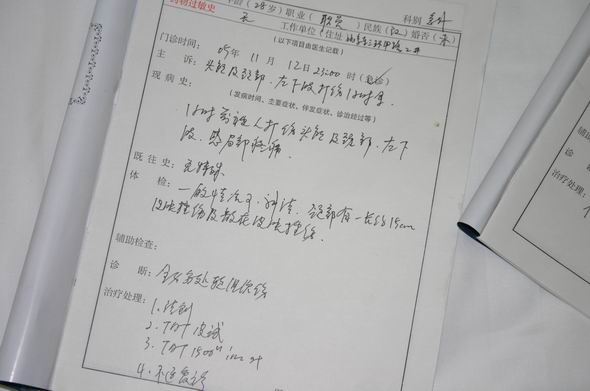 药物过敏史
年龄（28岁）职业（职员）民族（汉）婚否（未） 科别
工作单位/住址
（以下项目由医生记载）
门诊时间：05年11月12日23:00时（急诊）
主诉：头部及颈部、左下肢打伤1小时余
现病史：（发病时间、主要症状、伴发症状、诊治经过等）
1小时前被人打伤头部及颈部、左下
肢，感局部疼痛.
既往史：无特殊
体检：一般情况可，神清，颈部有一长约15cm
皮肤挫伤及散在皮肤挫伤.
辅助检查：
诊断：全身多处软组织伤
治疗处理：1.清创
2. TAT 皮试
3. TAT 1500u im st
4. 不适复诊
诊
治疗处理：